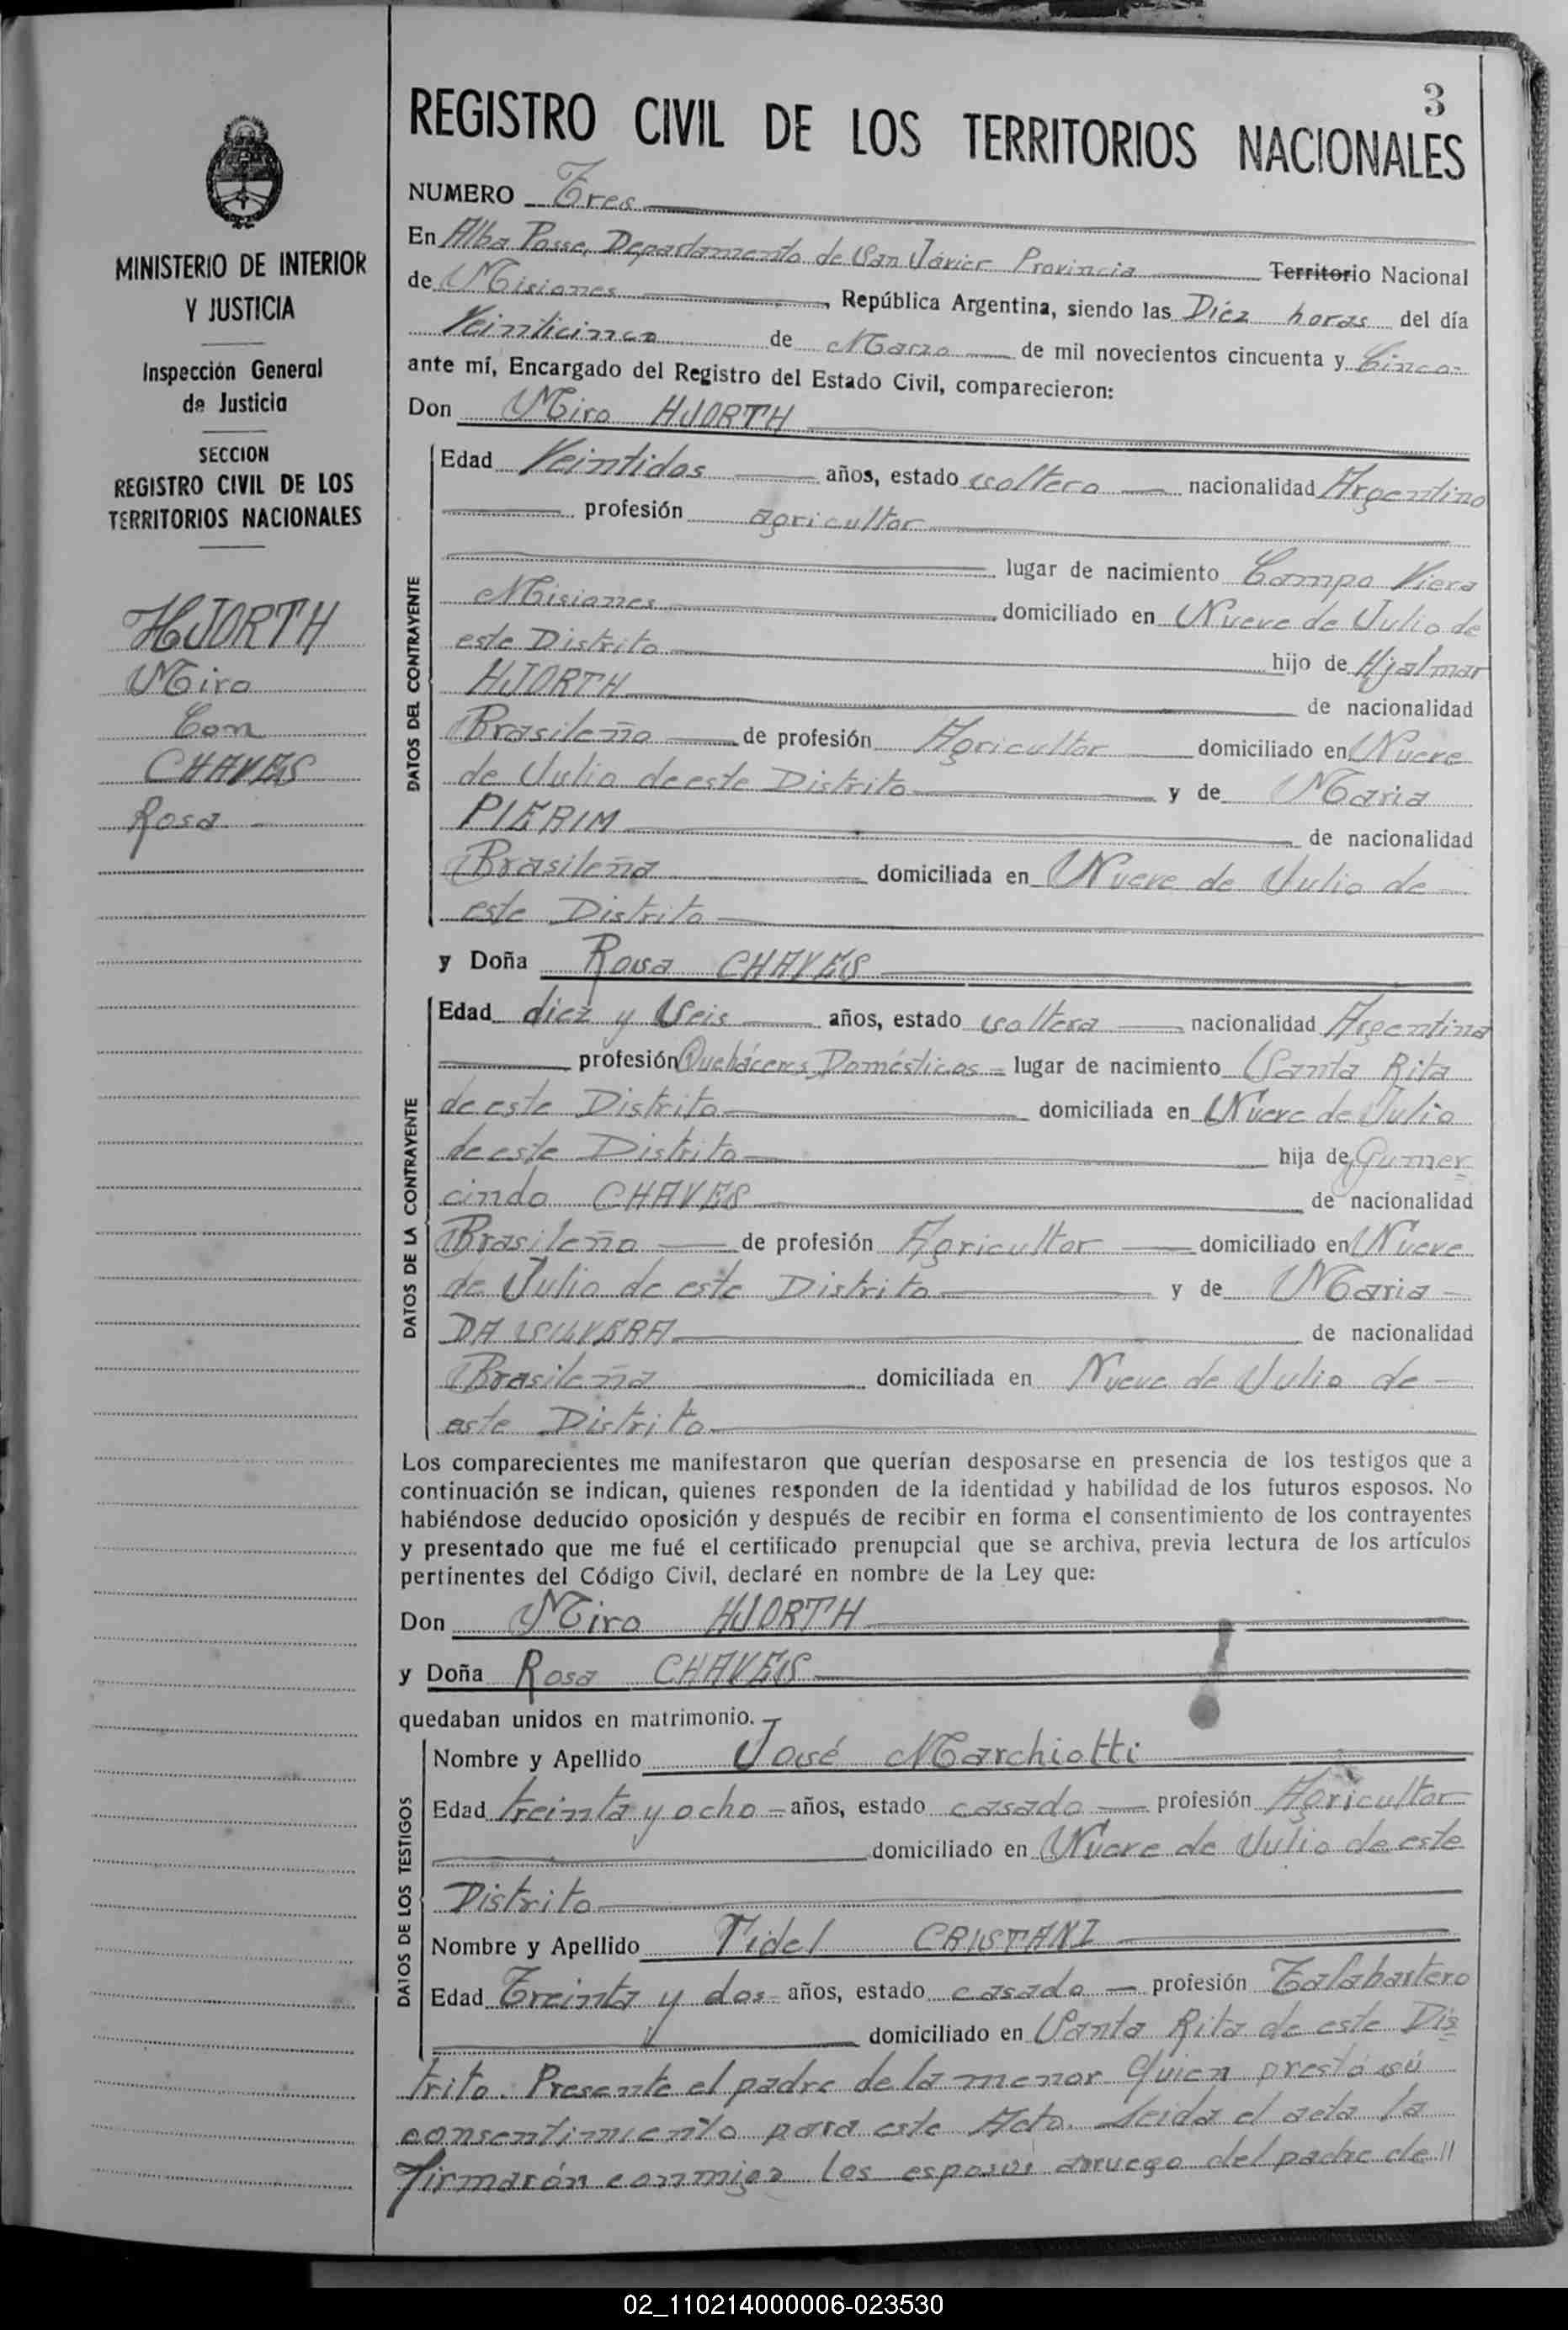 3
REGISTRO CIVIL DE LOS TERRITORIOS NACIONALES
MINISTERIO DE INTERIOR
Y JUSTICIA
Inspección General
de Justicia
SECCION
REGISTRO CIVIL DE LOS
TERRITORIOS NACIONALES
HJORTH
Miro
Con
CHAVES
Rosa
NUMERO Tres
En Alba Posse, Departamento de San Javier Provincia Territorio Nacional
de Misiones, República Argentina, siendo las Diéz horas del día
Veinticinco de Marzo de mil novecientos cincuenta y Cinco
ante mí, Encargado del Registro del Estado Civil, comparecieron:
Don Miro HJORTH
DATOS DEL CONTRAYENTE
Edad Veintidos años, estado soltero nacionalidad Argentino
profesión agricultor
lugar de nacimiento Campo Viera
Misiones domiciliado en Nueve de Julio de
este Distrito hijo de Hjalmar
HJORTH de nacionalidad
Brasileño de profesión Agricultor domiciliado en Nueve
de Julio de este Distrito y de Maria
PIERIM de nacionalidad
Brasileña domiciliada en Nueve de Julio de
este Distrito
y Doña Rosa CHAVES
DATOS DE LA CONTRAYENTE
Edad diez y Seis años, estado soltera nacionalidad Argentina
profesión Queháceres Domésticos = lugar de nacimiento Santa Rita
de este Distrito domiciliada en Nueve de Julio
de este Distrito hija de Gumer=
cindo CHAVES de nacionalidad
Brasileño de profesión Agricultor domiciliado en Nueve
de Julio de este Distrito y de Maria
DA SILVERA de nacionalidad
Brasileña domiciliada en Nueve de Julio de
este Distrito
Los comparecientes me manifestaron que querían desposarse en presencia de los testigos que a
continuación se indican, quienes responden de la identidad y habilidad de los futuros esposos. No
habiéndose deducido oposición y después de recibir en forma el consentimiento de los contrayentes
y presentado que me fué el certificado prenupcial que se archiva, previa lectura de los artículos
pertinentes del Código Civil, declaré en nombre de la Ley que:
Don Miro HJORTH
y Doña Rosa CHAVES
quedaban unidos en matrimonio.
DATOS DE LOS TESTIGOS
Nombre y Apellido José Marchiotti
Edad treinta y ocho = años, estado casado profesión Agricultor
domiciliado en Nueve de Julio de este
Distrito
Nombre y Apellido Fidel CRISTANI
Edad Treinta y dos = años, estado casado profesión Talabartero
domiciliado en Santa Rita de este Dis=
trito. Presente el padre de la menor Quien prestó sú
consentimiento para este Acto. Leida el acta la
firmarón conmigo los esposos arruego del padre de //
02_110214000006-023530